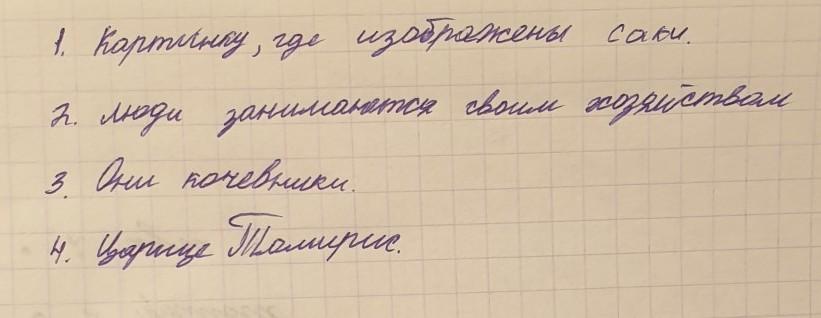 1. Картинку, где изображены саки.
2. люди занимаются своим хозяйством
3. Они кочевники.
4. Царице Томирис.